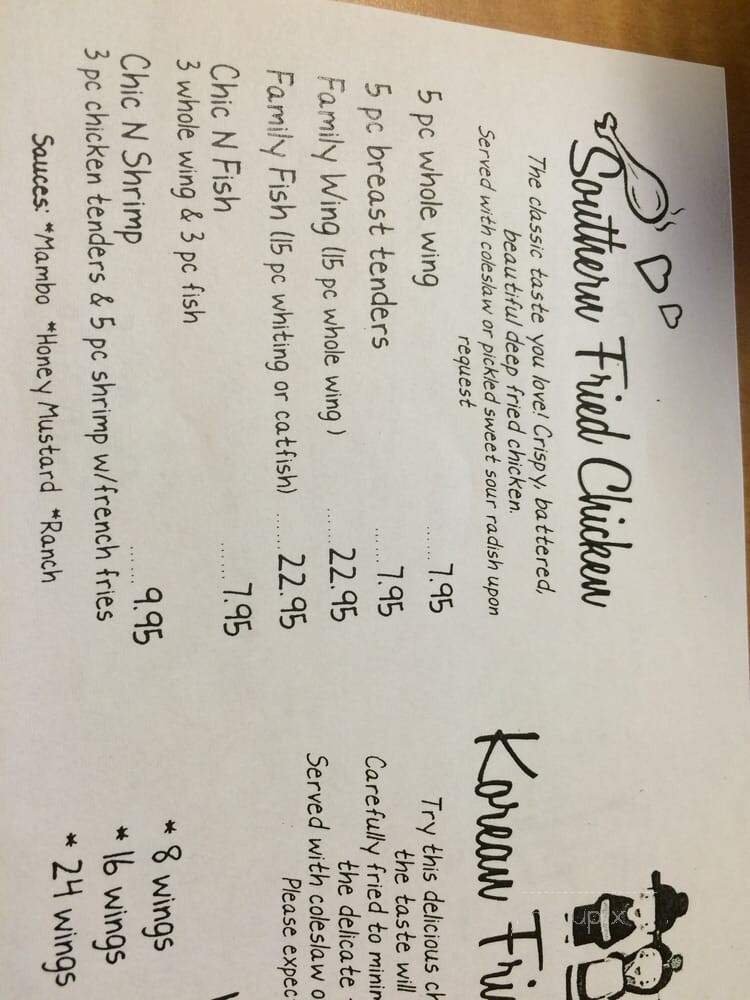 Southern Fried Chicken
The classic taste you love! Crispy, battered,
beautiful deep fried chicken.
Served with coleslaw or pickled sweet sour radish upon
request
5 pc whole wing ....... 7.95
5 pc breast tenders ....... 7.95
Family Wing (15 pc whole wing ) ....... 22.95
Family Fish (15 pc whiting or catfish) ....... 22.95
Chic N Fish
3 whole wing & 3 pc fish ....... 7.95
Chic N Shrimp ....... 9.95
3 pc chicken tenders & 5 pc shrimp w/french fries
Sauces: *Mambo *Honey Mustard *Ranch
Korean
Try this delicious
the taste will
Carefully fried to
the delicate
Served with coleslaw
Please
* 8 wings
* 16 wings
* 24 wings